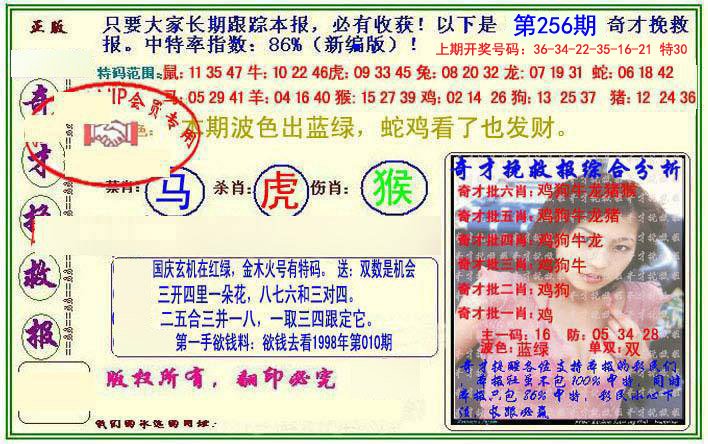 正版
只要大家长期跟踪本报，必有收获！以下是 第256期 奇才挽救
报。中特率指数：86%（新编版）！
上期开奖号码：36-34-22-35-16-21 特30
特码范围：鼠：11 35 47 牛：10 22 46虎：09 33 45 兔：08 20 32 龙：07 19 31 蛇：06 18 42
马：05 29 41 羊：04 16 40 猴：15 27 39 鸡：02 14 26 狗：13 25 37 猪：12 24 36
VIP会员专用
色：本期波色出蓝绿，蛇鸡看了也发财。
禁肖：马 杀肖：虎 伤肖：猴
奇才挽救报
国庆玄机在红绿，金木火号有特码。 送：双数是机会
三开四里一朵花，八七六和三对四。
二五合三并一八，一取三四跟定它。
第一手欲钱料：欲钱去看1998年第010期
版权所有，翻印必究
我们的永远的网址：
奇才挽救报综合分析
奇才批六肖：鸡狗牛龙猪猴
奇才批五肖：鸡狗牛龙猪
奇才批四肖：鸡狗牛龙
奇才批三肖：鸡狗牛
奇才批二肖：鸡狗
奇才批一肖：鸡
主一码：16 防：05 34 28
波色：蓝绿 单双：双
奇才提醒各位支持本报的彩民们
，本报社虽不包100%中特，同时
本报只包86%中特，彩民小心下
注，长跟必赢